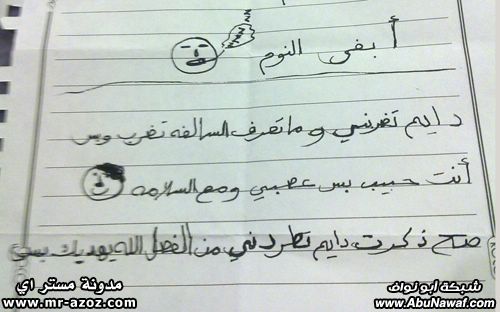 أبغى النوم
دايم تضربني وما تعرف السالفه تضرب وبس
أنت حبيب بس عصبي ومع السلامه
صح ذكرت دايم تطردني من الفصل الله يهديك بس
شبكة أبو نواف
www.AbuNawaf.com
مدونة مستر اي
www.mr-azoz.com